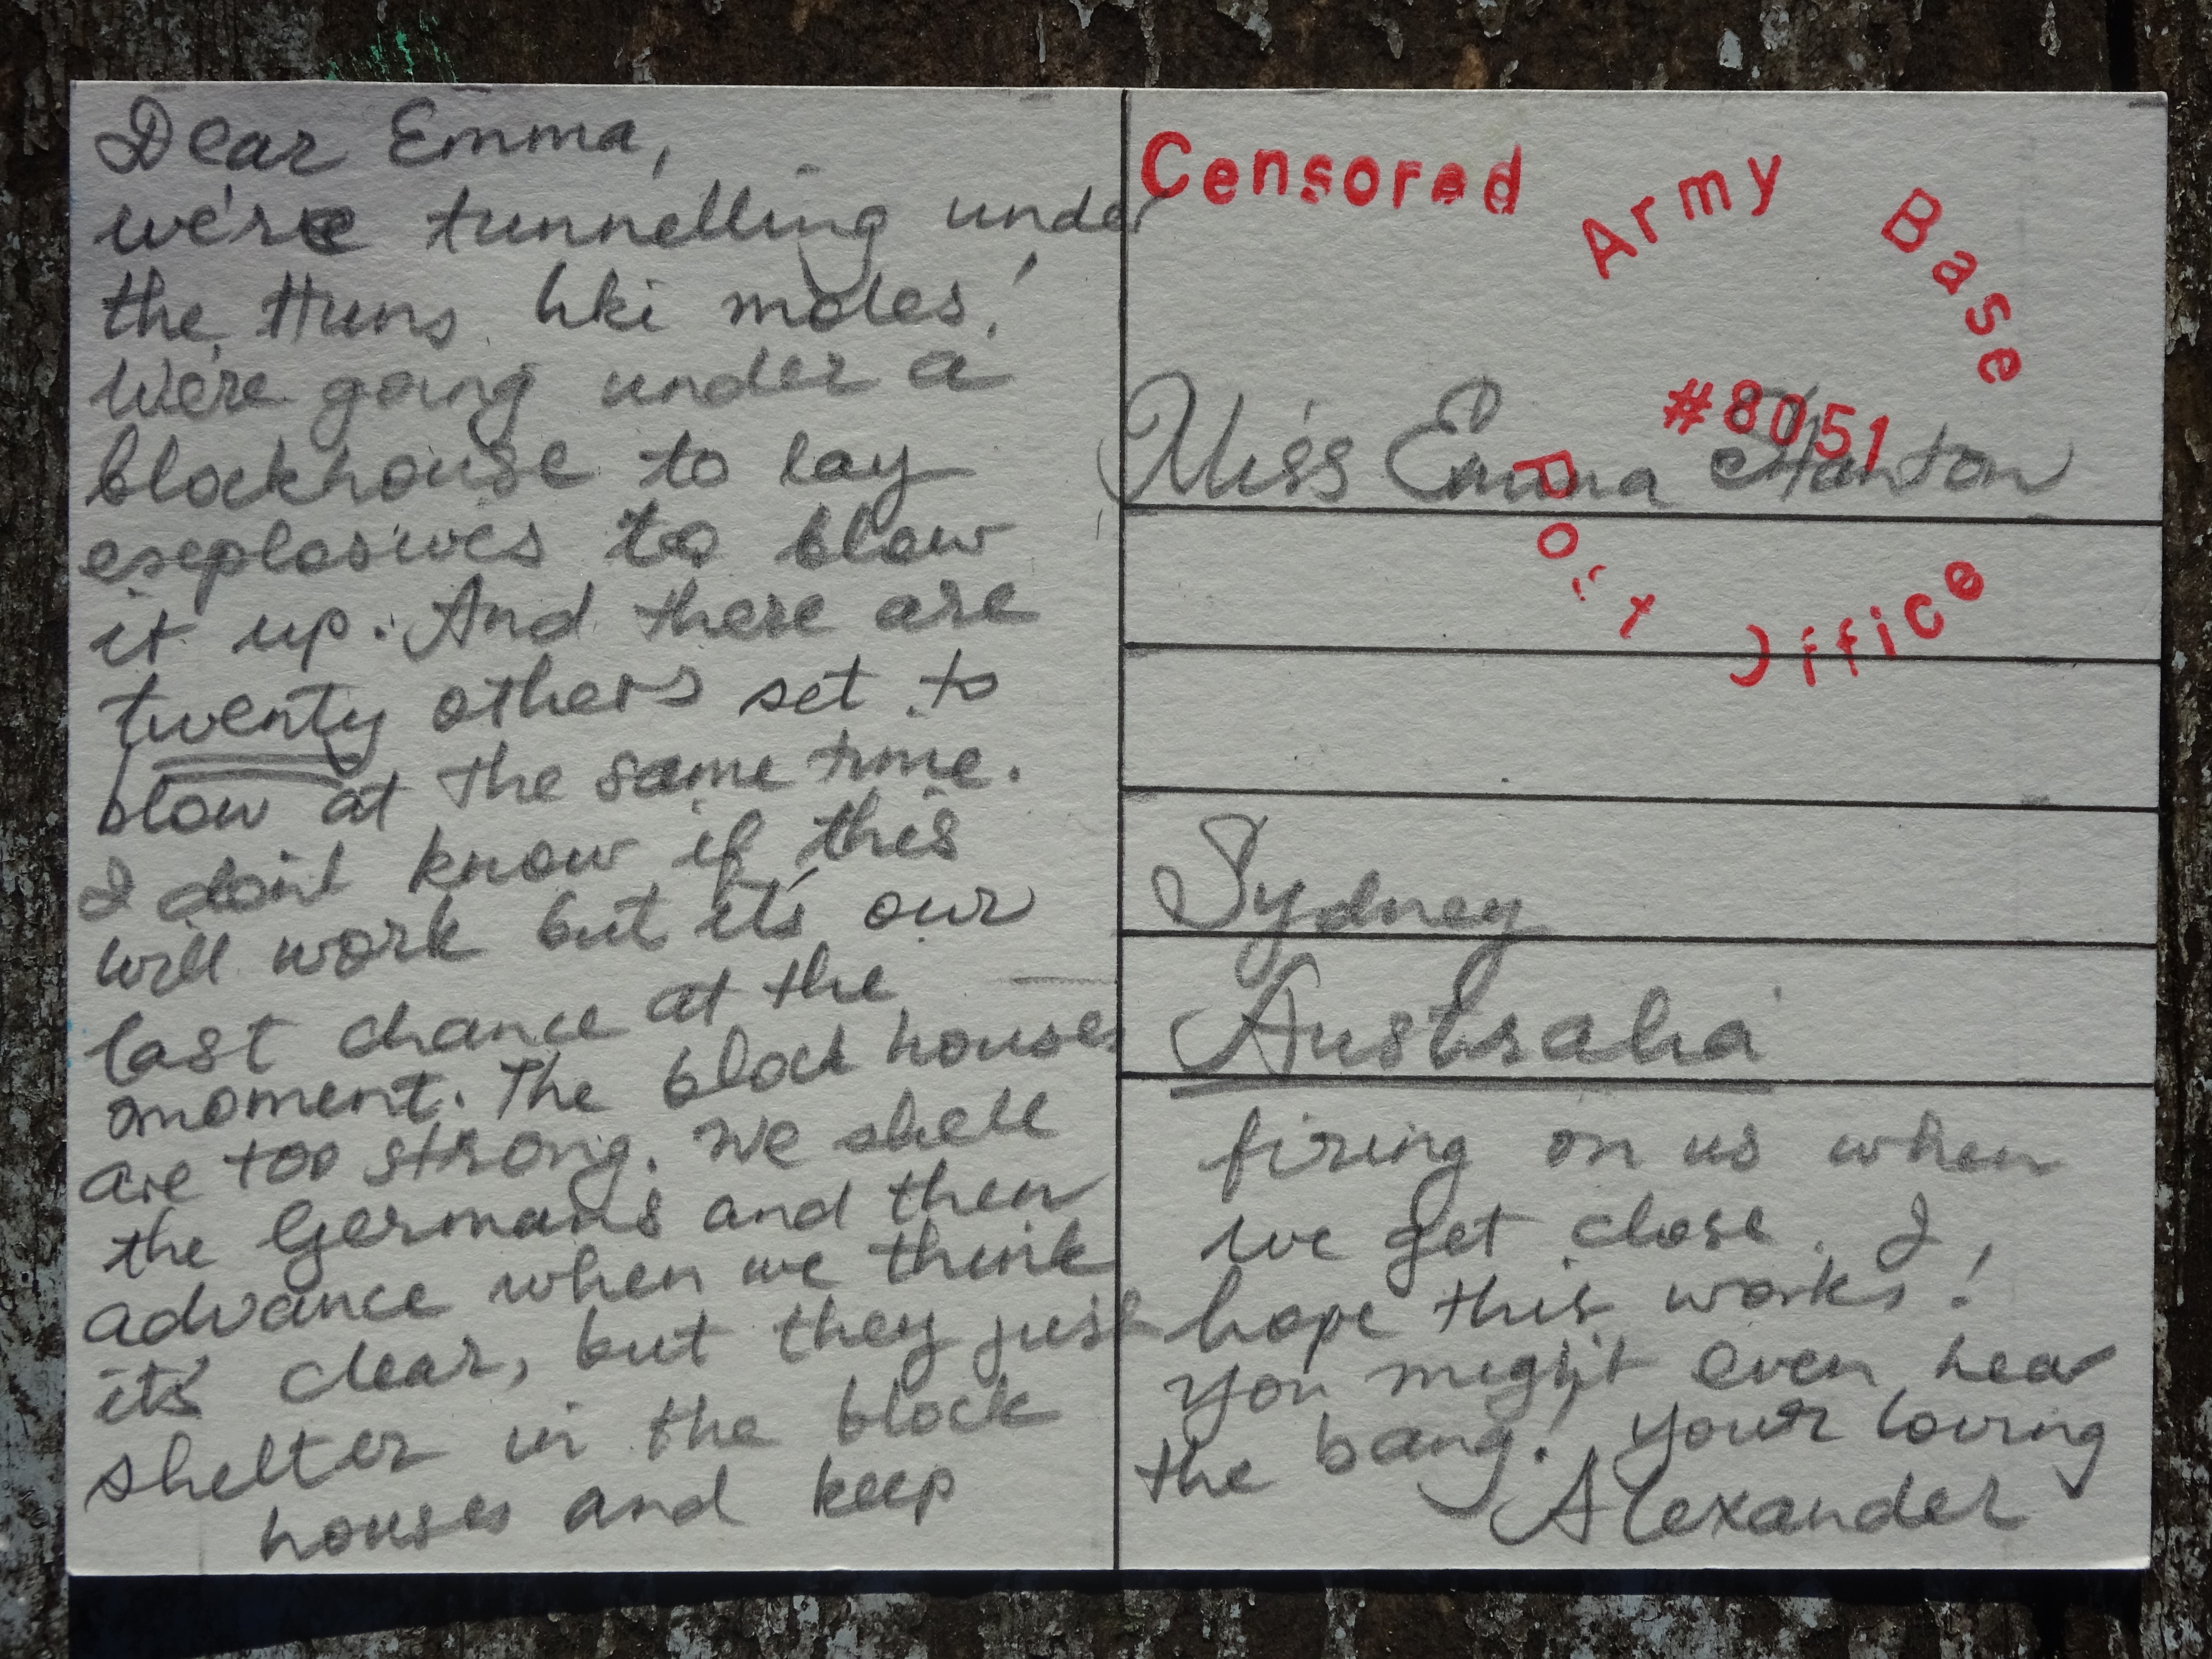 Dear Emma,
we're tunnelling under
the Huns liki moles!
We're going under a
blockhouse to lay
exeplosives to blow
it up. And there are
twenty others set to
blow at the same time.
I don't know if this
will work but it's our
last chance at the
moment. The block houses
are too strong. We shell
the Germans and then
advance when we think
it's clear, but they just
shelter in the block
houses and keep
Censored
Army Base
#8051
Post Office
Miss Emma Stanton
Sydney
Australia
firing on us when
we get close. I
hope this works!
You might even hear
the bang! Your loving
Alexander